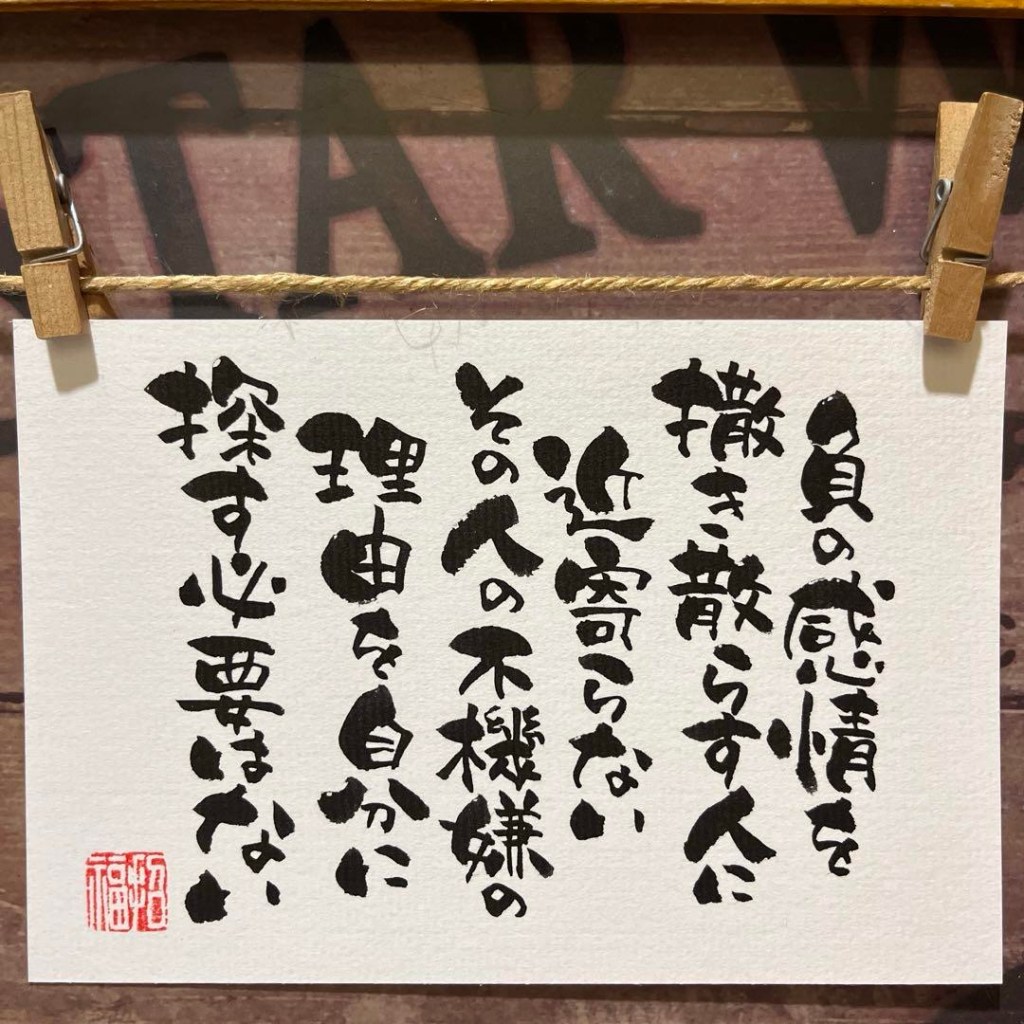 TAR W
負の感情を
撒き散らす人に
近寄らない
その人の不機嫌の
理由を自分に
探す必要はない
招福